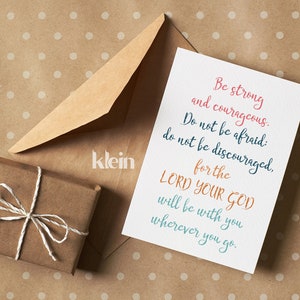 Be strong
and courageous.
Do not be afraid;
do not be discouraged,
for the
LORD YOUR GOD
will be with you
wherever you go.
klein